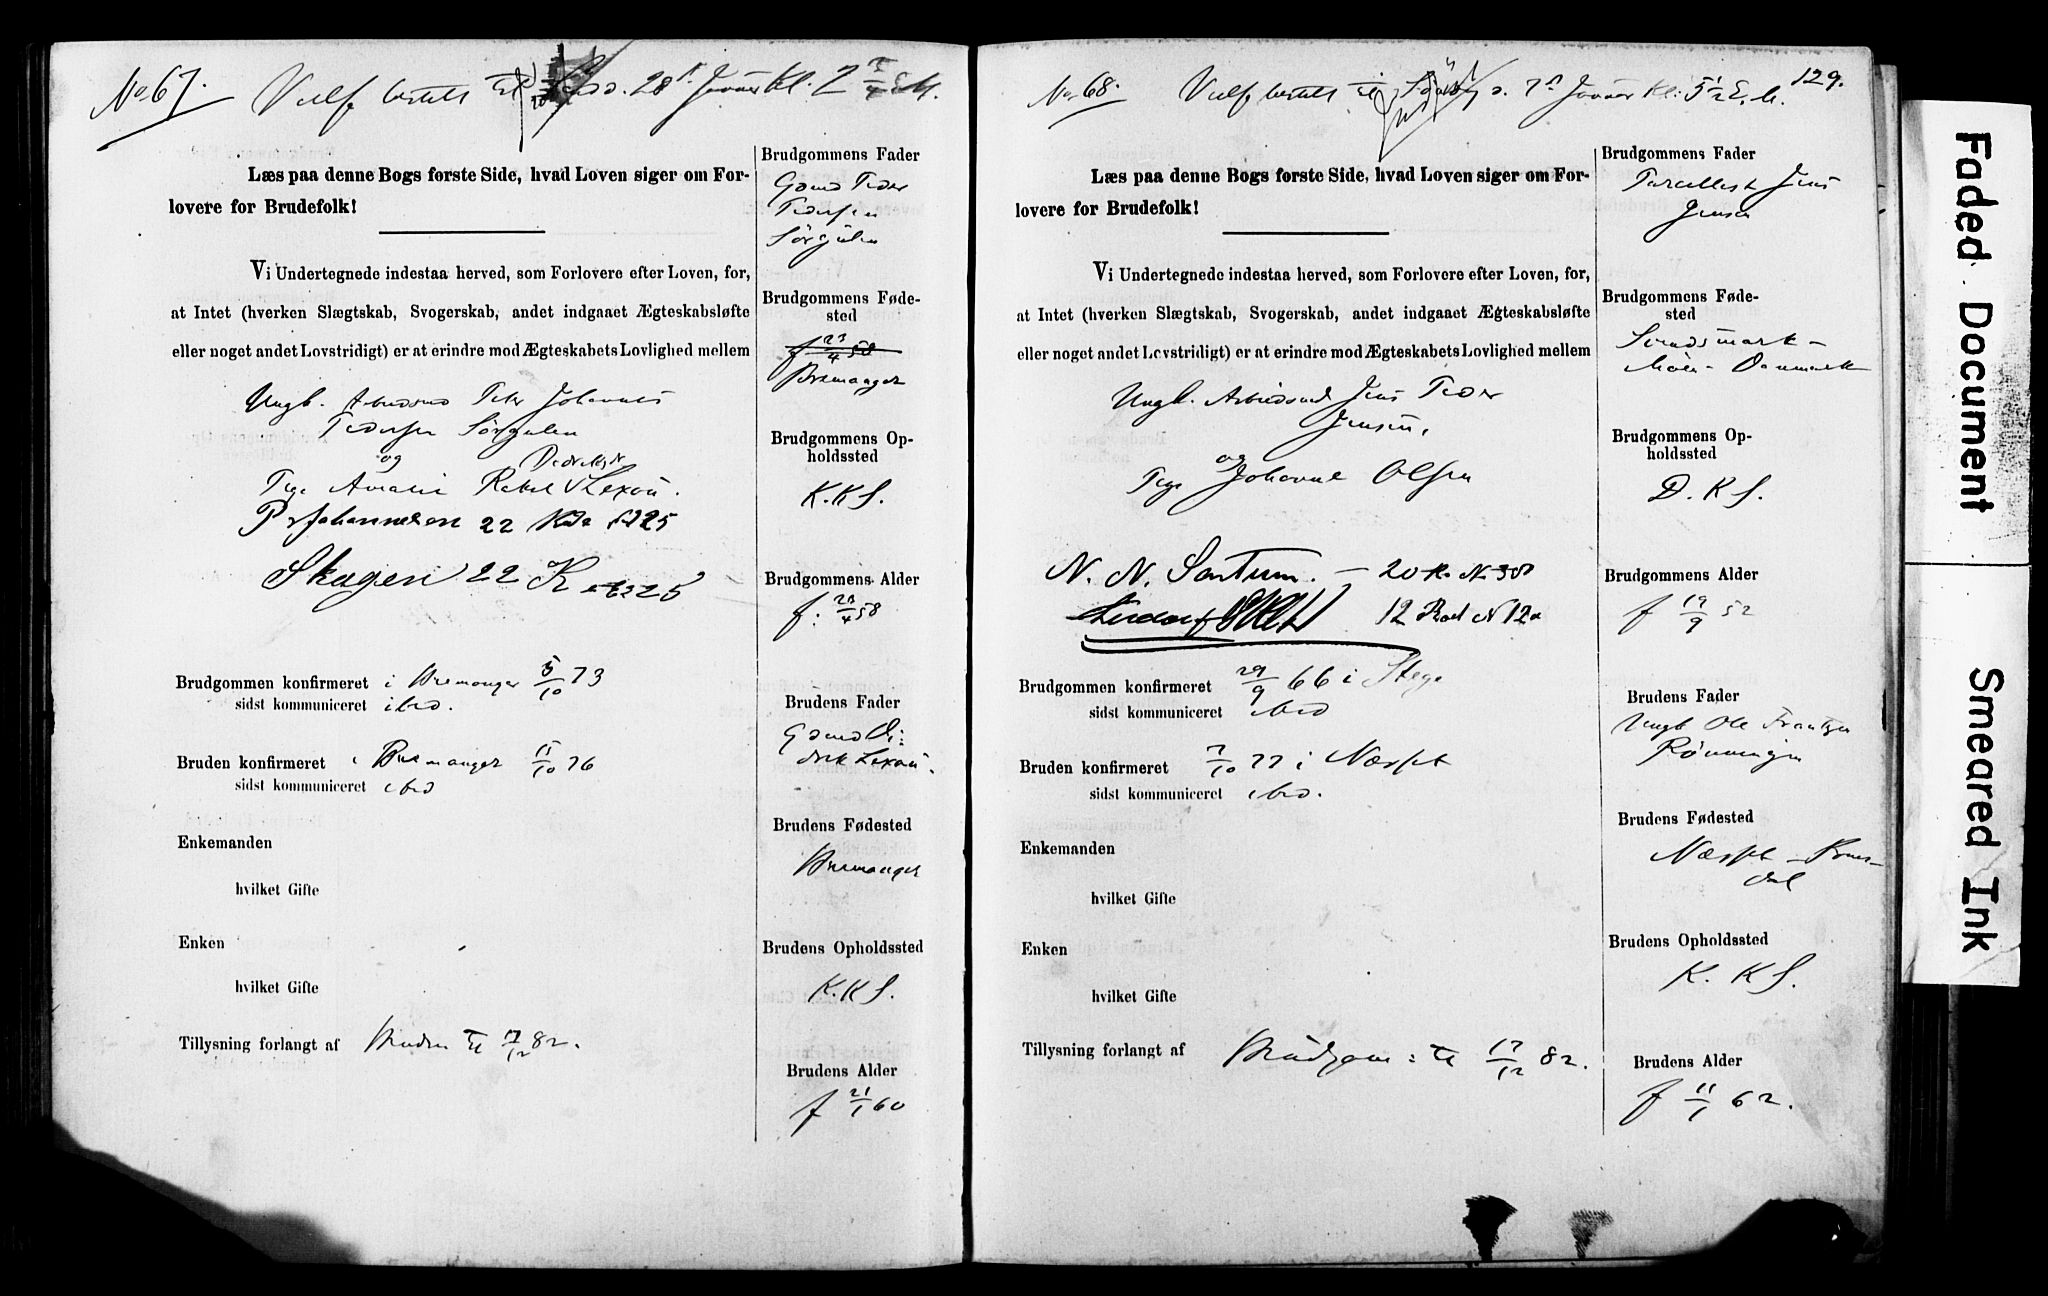 No 67.
Vielse bestilt til d. 28de Januar Kl. 2 E.M.
Læs paa denne Bogs første Side, hvad Loven siger om For-
lovere for Brudefolk!
Vi Undertegnede indestaa herved, som Forlovere efter Loven, for,
at Intet (hverken Slægtskab, Svogerskab, andet indgaaet Ægteskabsløfte
eller noget andet Lovstridigt) er at erindre mod Ægteskabets Lovlighed mellem
Ungk. Arbeidsmd Peter Johannes
Pedersen Sørgulen
og Dedrikke
Pige Amalie Rakel
P Johannesen 22
Skagen 22 K
Brudgommen konfirmeret i Bremanger 5/10 73
sidst kommuniceret ibid.
Bruden konfirmeret i Bremanger 15/10 76
sidst kommuniceret ibid
Enkemanden
hvilket Gifte
Enken
hvilket Gifte
Tillysning forlangt af Bruden til 17/12 82.
Brudgommens Fader
Gdmd Peder
Pedersen
Sørgulen
Brudgommens Føde-
sted
f 23/4 58
Bremanger
Brudgommens Op-
holdssted
K.K S.
Brudgommens Alder
f: 23/4 58
Brudens Fader
Gdmd Di-
drik
Brudens Fødested
Bremanger
Brudens Opholdssted
K.K S.
Brudens Alder
f 21/1 60
129.
No 68.
Vielse bestilt til d. 7de Januar Kl: 5 1/2 E.M.
Læs paa denne Bogs første Side, hvad Loven siger om For-
lovere for Brudefolk!
Vi Undertegnede indestaa herved, som Forlovere efter Loven, for,
at Intet (hverken Slægtskab, Svogerskab, andet indgaaet Ægteskabsløfte
eller noget andet Lovstridigt) er at erindre mod Ægteskabets Lovlighed mellem
Ungk. Arbeidsmd Jens Peder
Jensen,
og
Pige Johanne Olsen
N. N. Sortum. – 20 K. N 30
12 Rod N 12a
Brudgommen konfirmeret 29/9 66 i Stege
sidst kommuniceret ibid
Bruden konfirmeret 7/10 77 i Næsset
sidst kommuniceret ibid.
Enkemanden
hvilket Gifte
Enken
hvilket Gifte
Tillysning forlangt af Brudgom: til 17/12 82.
Brudgommens Fader
Parcellist Jens
Jensen
Brudgommens Føde-
sted
Møen – Danmark
Brudgommens Op-
holdssted
D. K S.
Brudgommens Alder
f 19/9 52
Brudens Fader
Ungk Ole Frantzen
Rønningen
Brudens Fødested
Næsset – Roms-
dal
Brudens Opholdssted
K. K S.
Brudens Alder
f 11/1 62.
Faded Document
Smeared Ink